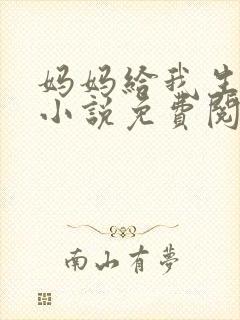 妈妈给我生
小説免費閱
南山有夢